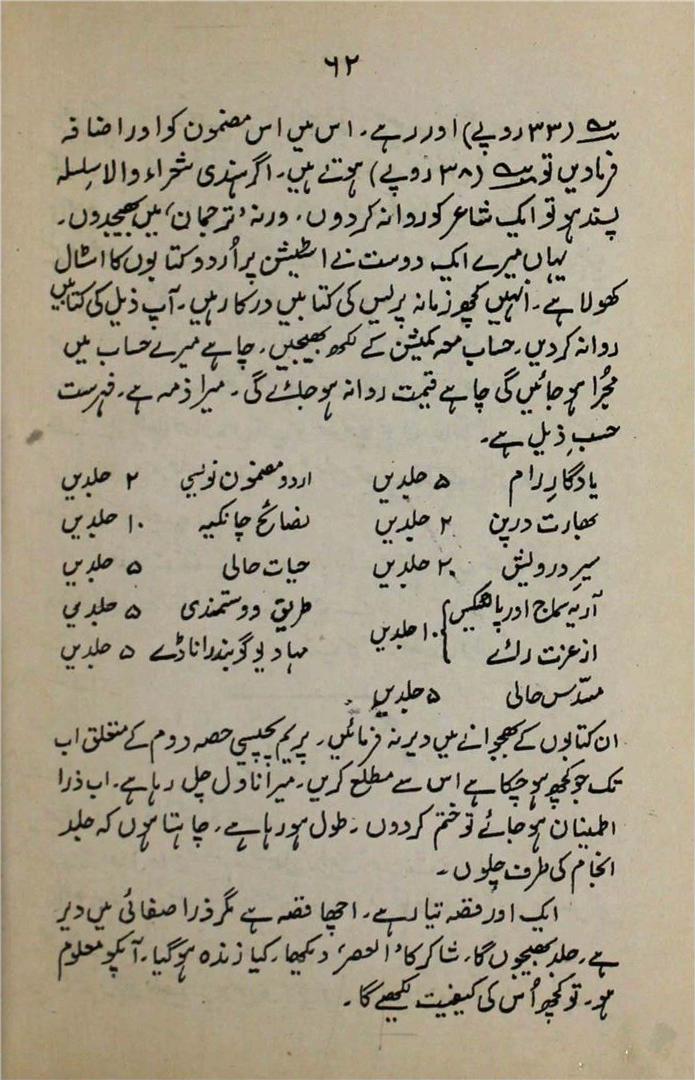 ۶۲
(۳۳ روپے) اور رہے۔ اس میں اس مضمون کو اور اضافہ
فرما دیں تو (۳۸ روپے) ہوتے ہیں۔ اگر ہندی شعراء والا سلسلہ
پسند ہو تو ایک شاعر کو روانہ کردوں، ورنہ ’ترجمان‘ میں بھیجدوں۔
یہاں میرے ایک دوست نے اسٹیشن پر اُردو کتابوں کا اسٹال
کھولا ہے۔ انہیں کچھ زمانہ پریس کی کتابیں درکار ہیں۔ آپ ذیل کی کتابیں
روانہ کردیں۔ حساب معہ کمیشن کے لکھ بھیجیں، چاہے میرے حساب میں
مجرا ہو جائیں گی چاہے قیمت روانہ ہوجائے گی۔ میرا ذمہ ہے۔ فہرست
حسبِ ذیل ہے۔
یادگارِ رام ۵ جلدیں اردو مضمون نویسی ۲ جلدیں
بھارت درپن ۲ جلدیں نصائح چانکیہ ۱۰ جلدیں
سیرِ درویش ۲ جلدیں حیات حالی ۵ جلدیں
آریہ سماج اور پالیٹکس ۱۰ جلدیں طریق دوستمندی ۵ جلدیں
از عزت رائے مہادیو گوبند راناڈے ۵ جلدیں
مسدّس حالی ۵ جلدیں
ان کتابوں کے بھجوانے میں دیر نہ فرمائیں۔ پریم پچیسی حصہ دوم کے متعلق اب
تک جو کچھ ہو چکا ہے اس سے مطلع کریں۔ میرا ناول چل رہا ہے۔ اب ذرا
اطمینان ہو جائے تو ختم کردوں۔ طول ہو رہا ہے۔ چاہتا ہوں کہ جلد
انجام کی طرف چلوں۔
ایک اور قصہ تیار ہے۔ اچھا قصہ ہے مگر ذرا صفائی میں دیر
ہے۔ جلد بھیجوں گا۔ شاکر کا ’العصر‘ دیکھا۔ کیا زندہ ہوگیا۔ آپکو معلوم
ہو۔ تو کچھ اُس کی کیفیت لکھیے گا۔